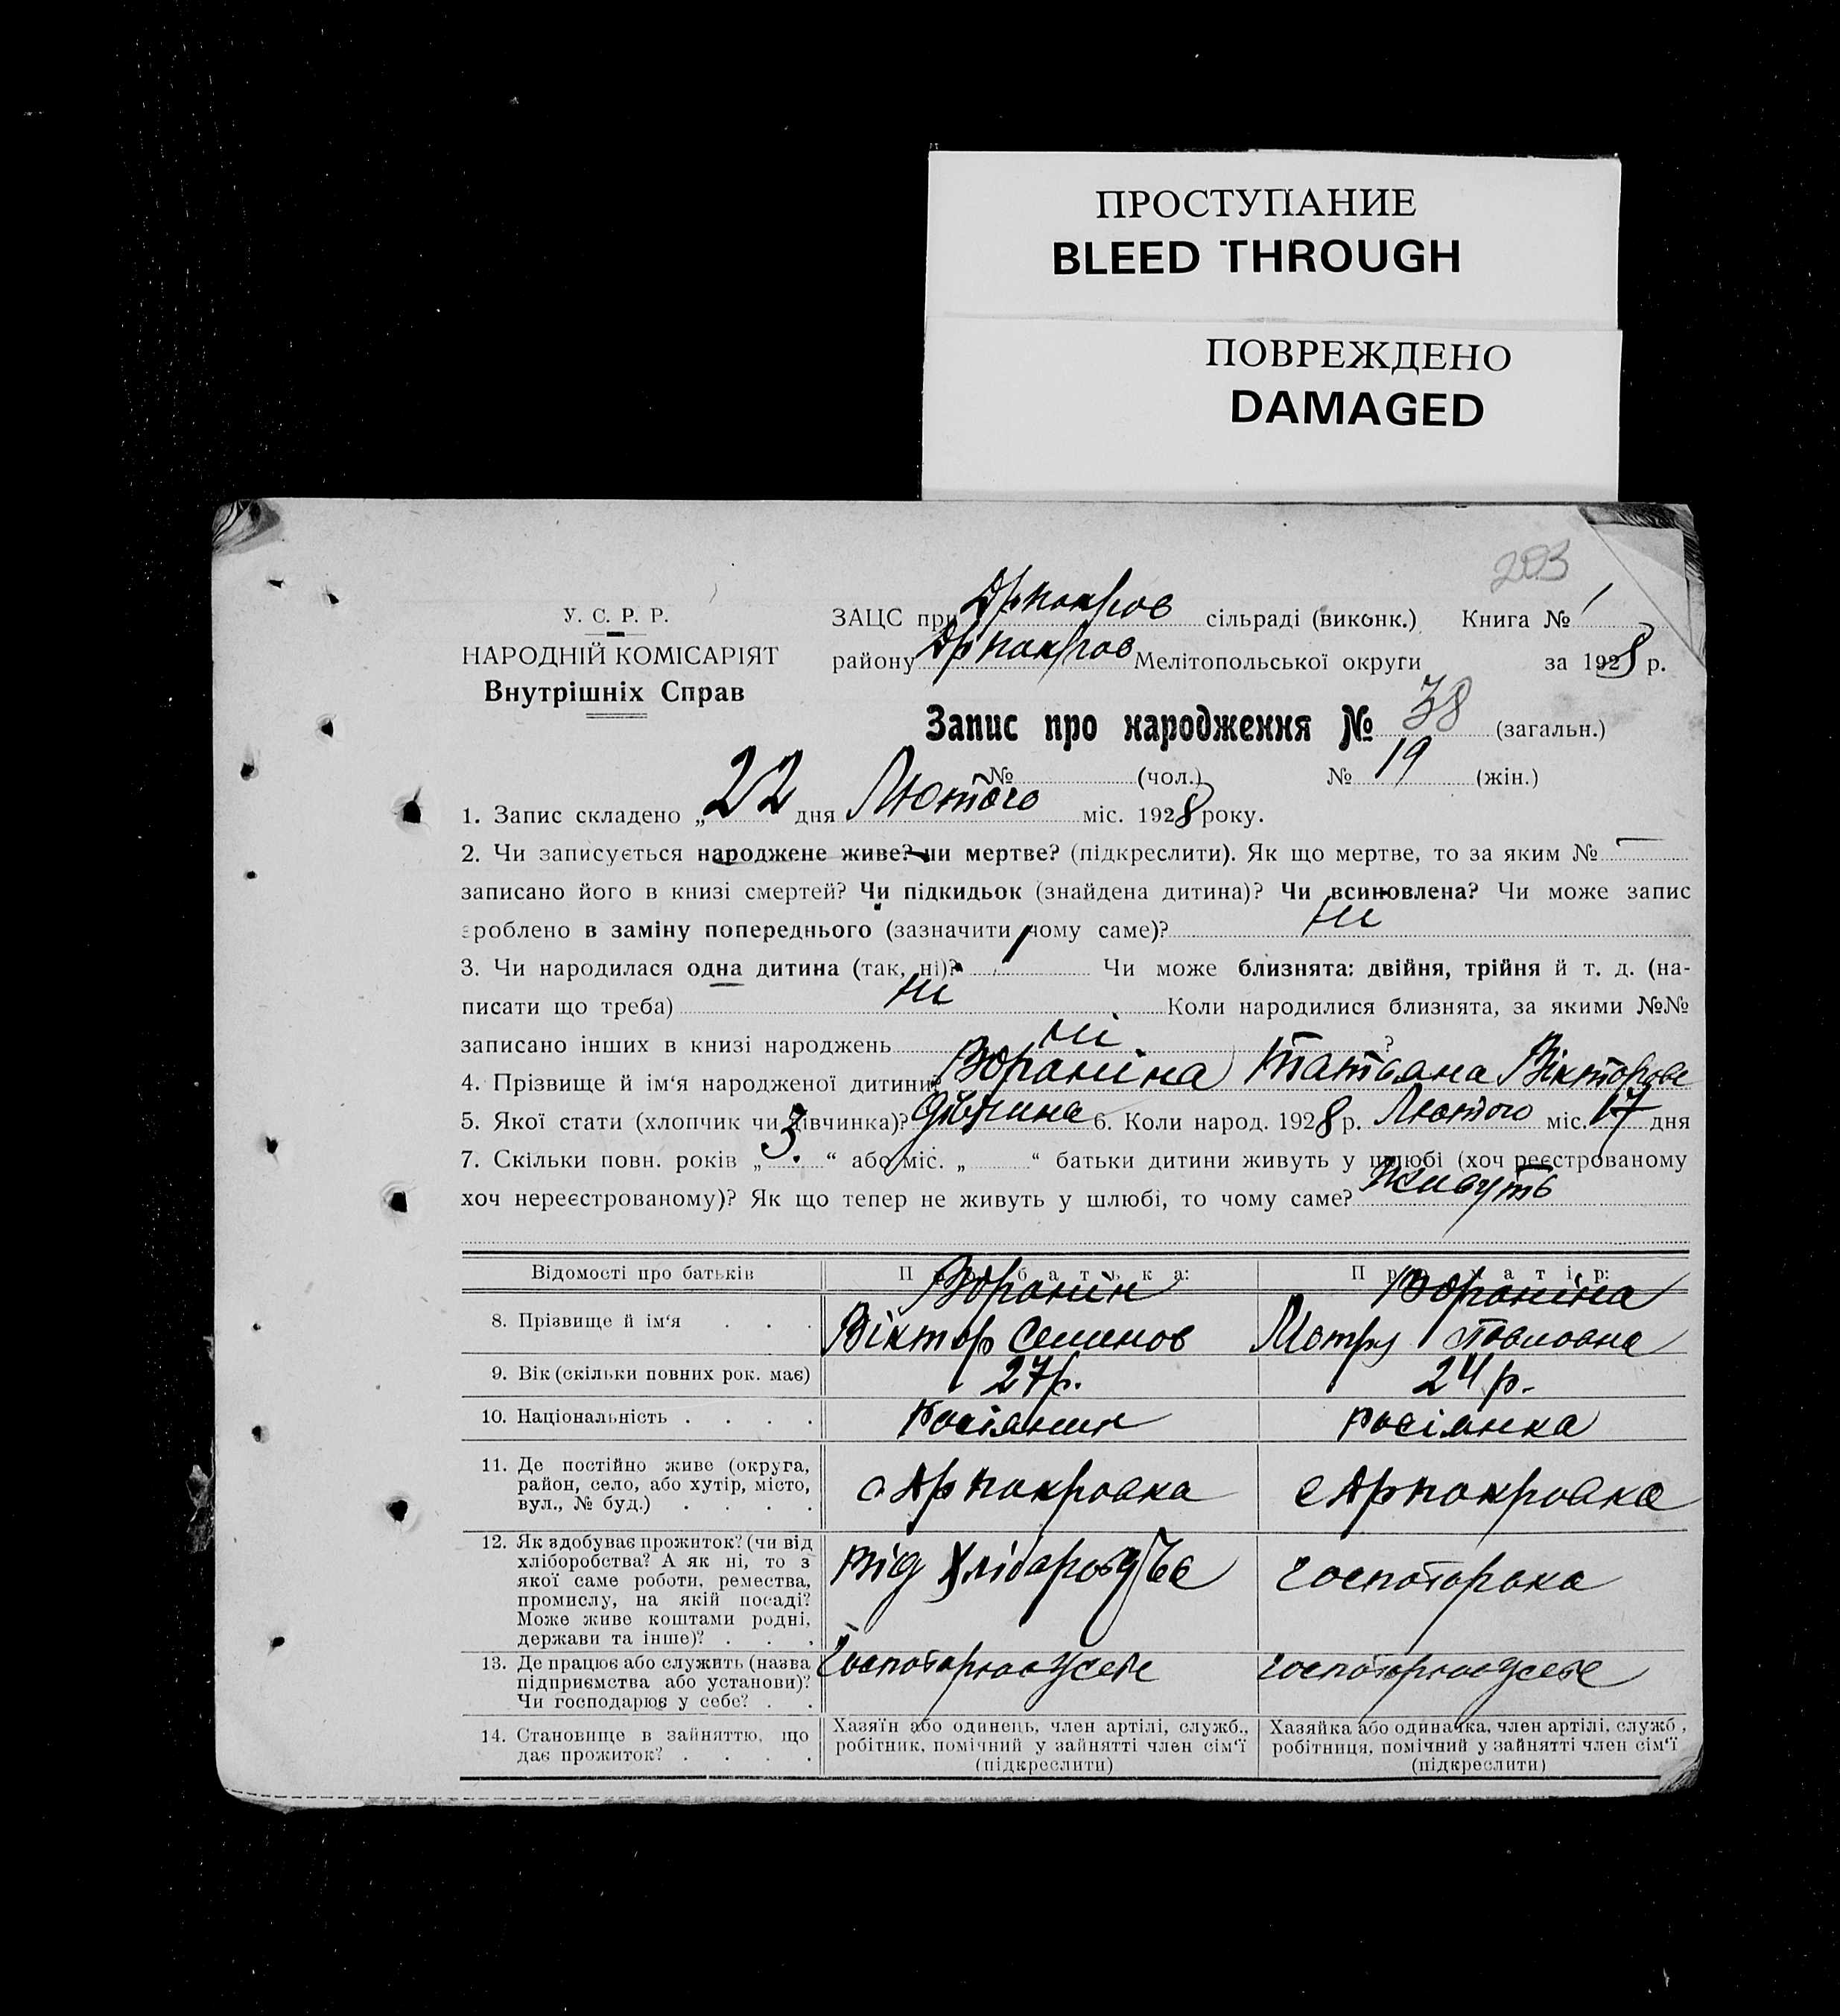 ПРОСТУПАНИЕ
BLEED THROUGH
ПОВРЕЖДЕНО
DAMAGED
203
У. С. Р. Р.
НАРОДНІЙ КОМІСАРІЯТ
Внутрішніх Справ
ЗАЦС при Арпокров сільраді (виконк.) Книга № 1
району Арпокров Мелітопольської округи за 1928 р.
Запис про народження № 38 (загальн.)
№ (чол.) № 19 (жін.)
1. Запис складено „ 22 дня Лютого міс. 1928 року.
2. Чи записується народжене живе? чи мертве? (підкреслити). Як що мертве, то за яким № —
записано його в книзі смертей? Чи підкидьок (знайдена дитина)? Чи всиновлена? Чи може запис
зроблено в заміну попереднього (зазначити чому саме)? ни
3. Чи народилася одна дитина (так, ні)? Чи може близнята: двійня, трійня й т. д. (на-
писати що треба) ни Коли народилися близнята, за якими №№
записано інших в книзі народжень ні ?
4. Прізвище й ім‘я народженої дитини? Вораніна Татьяна Вікторов
5. Якої стати (хлопчик чи дівчинка)? дівчина 6. Коли народ. 1928 р. Лютого міс. 17 дня
7. Скільки повн. років „ 3. “ або міс. „ “ батьки дитини живуть у шлюбі (хоч реєстрованому
хоч нереєстрованому)? Як що тепер не живуть у шлюбі, то чому саме? Живуть
Відомості про батьків Про батька: Про матір:
8. Прізвище й ім‘я Воранін Віктор Семинов Вораніна Мотря Павловна
9. Вік (скільки повних рок. має) 27 р. 24 р.
10. Національність Росіянин росіянка
11. Де постійно живе (округа,
район, село, або хутір, місто,
вул., № буд.) с Арпакровка с Арпокровка
12. Як здобуває прожиток? (чи від
хліборобства? А як ні, то з
якої саме роботи, ремества,
промислу, на якій посаді?
Може живе коштами родні,
держави та інше)?
від
13. Де працює або служить (назва
підприємства або установи)?
Чи господарює у себе?
14. Становище в зайняттю, що
дає прожиток?
Хазяїн або одинець, член артілі, служб.,
робітник, помічний у зайнятті член сім‘ї
(підкреслити)
Хазяйка або одиначка, член артілі, служб,
робітниця, помічний у зайнятті член сім‘ї
(підкреслити)